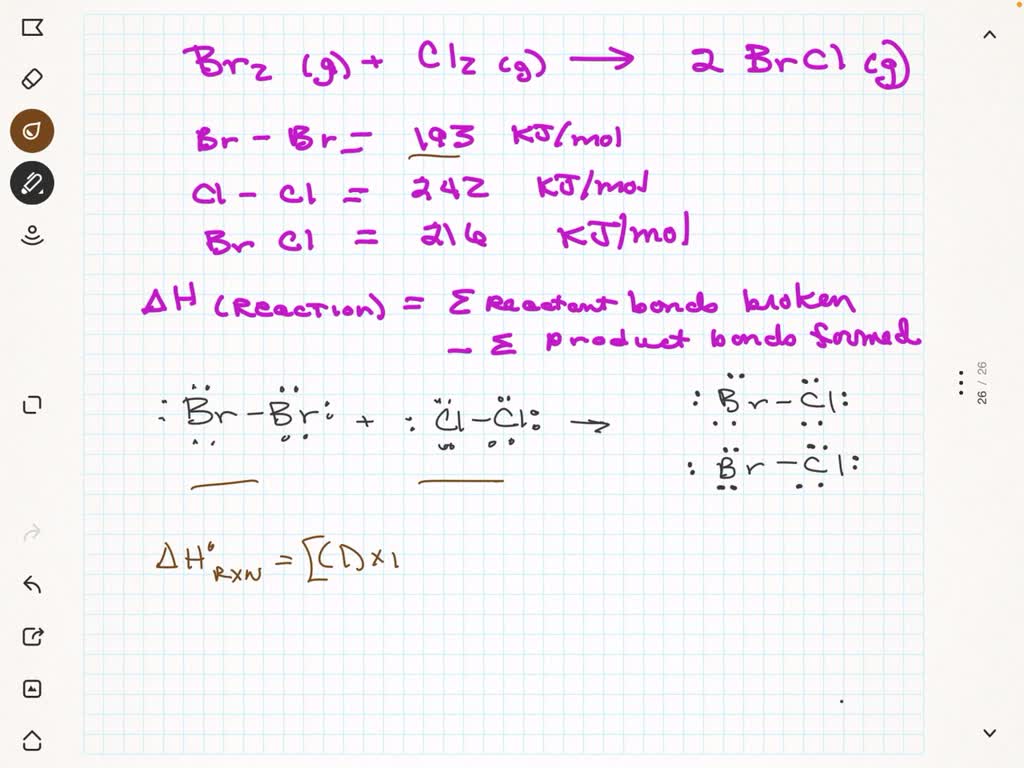 Br2 (g) + Cl2 (g) → 2 BrCl (g)
Br - Br = 193 KJ/mol
Cl - Cl = 242 KJ/mol
Br Cl = 216 KJ/mol
ΔH (Reaction) = Σ Reactant bonds broken
- Σ product bonds formed
:Br-Br: + :Cl-Cl: → :Br-Cl:
:Br-Cl:
ΔH°RXN = [(1)×1
26 / 26